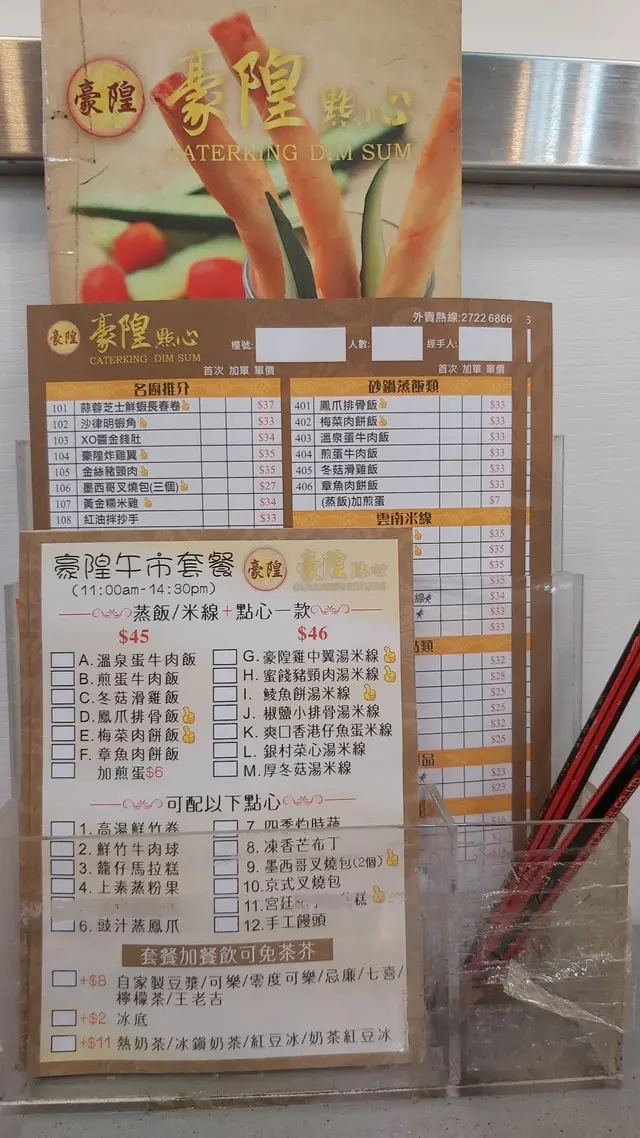 豪隍
豪隍 點心
CATERKING DIM SUM
外賣熱線:2722 6866
豪隍 豪隍 點心
CATERKING DIM SUM
檯號: 人數: 經手人:
首次 加單 單價 首次 加單 單價
名廚推介
101 蒜蓉芝士鮮蝦長春卷 $37
102 沙律明蝦角 $33
103 XO醬金錢肚 $34
104 豪隍炸雞翼 $35
105 金絲豬頸肉 $35
106 墨西哥叉燒包(三個) $27
107 黃金糯米雞 $34
108 紅油拌抄手 $33
砂鍋蒸飯類
401 鳳爪排骨飯 $33
402 梅菜肉餅飯 $33
403 溫泉蛋牛肉飯 $33
404 煎蛋牛肉飯 $33
405 冬菇滑雞飯 $33
406 章魚肉餅飯 $33
(蒸飯)加煎蛋 $7
雲南米線
$35
$35
$35
$35
線 $34
$33
類
$32
$28
$25
$25
$32
$25
品
$23
$23
豪隍午市套餐 豪隍 豪隍 點心
(11:00am-14:30pm)
蒸飯/米線+點心一款
$45 $46
A. 溫泉蛋牛肉飯
B. 煎蛋牛肉飯
C. 冬菇滑雞飯
D. 鳳爪排骨飯
E. 梅菜肉餅飯
F. 章魚肉餅飯
加煎蛋$6
G. 豪隍雞中翼湯米線
H. 蜜餞豬頸肉湯米線
I. 鯪魚餅湯米線
J. 椒鹽小排骨湯米線
K. 爽口香港仔魚蛋米線
L. 銀村菜心湯米線
M. 厚冬菇湯米線
可配以下點心
1. 高湯鮮竹卷
2. 鮮竹牛肉球
3. 籠仔馬拉糕
4. 上素蒸粉果
6. 豉汁蒸鳳爪
7. 四季灼時蔬
8. 凍香芒布丁
9. 墨西哥叉燒包(2個)
10. 京式叉燒包
11. 宮廷 糕
12. 手工饅頭
套餐加餐飲可免茶芥
+$8 自家製豆漿/可樂/零度可樂/忌廉/七喜/
檸檬茶/王老吉
+$2 冰底
+$11 熱奶茶/冰鎮奶茶/紅豆冰/奶茶紅豆冰